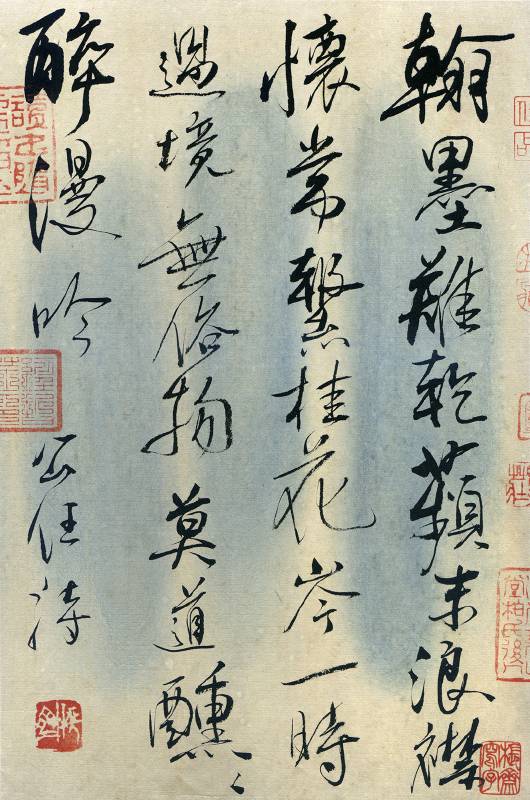 翰墨難乾蘋末浪襟
懷常繫桂花岑一時
過境無俗物莫道醺〻
醉漫吟 公任詩